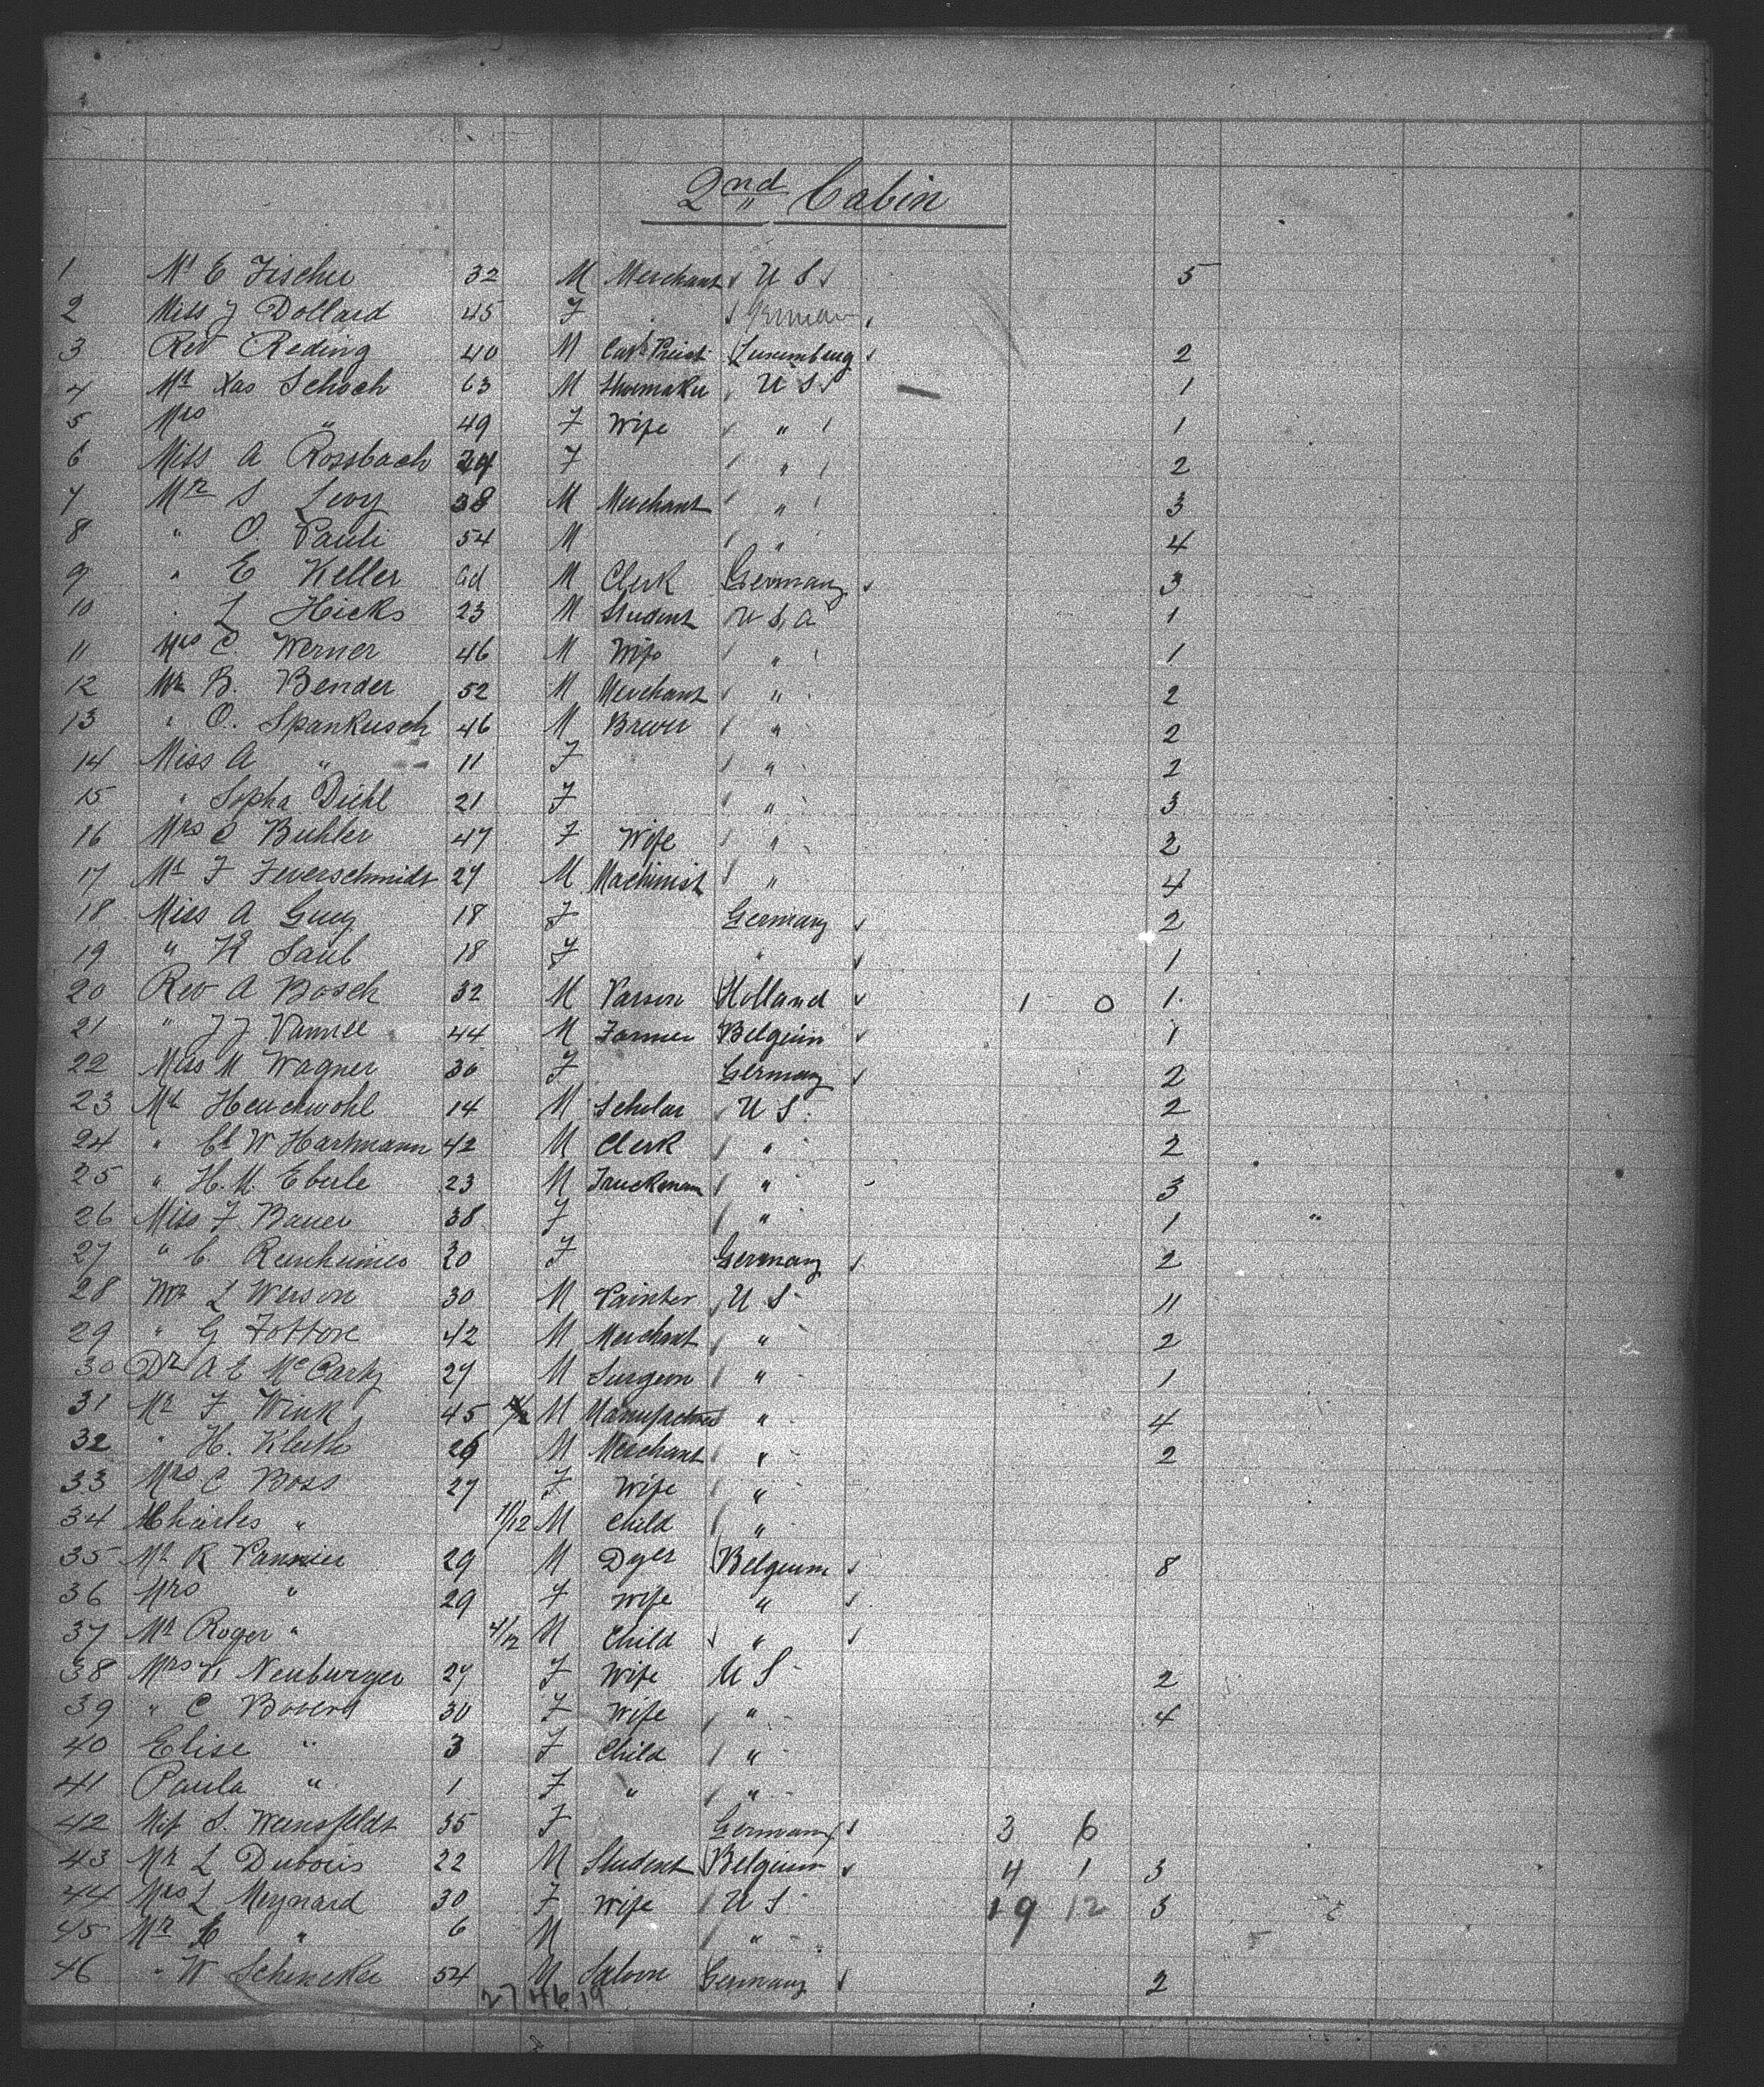 2nd Cabin
1 Mr E Fischer 32 M Merchant U S 5
2 Miss J Dollard 45 F German
3 Rev Reding 40 M Cath Preist Luxemburg 2
4 Mr Schoch 63 M Shoemaker U S 1
5 Mrs " 49 F Wife " 1
6 Miss A Rossbach F " 2
7 Mr S Levy 38 M Merchant " 3
8 " O. Pauli 54 M " 4
9 " E Keller M Clerk Germany 3
10 " L Hicks 23 M Student U S A 1
11 Mrs C. Werner 46 M Wife " 1
12 Mr B. Bender 52 M Merchant " 2
13 " O. Spankusch 46 M Brewer " 2
14 Miss A " 11 F " 2
15 " Sopha Diehl 21 F " 3
16 Mrs C Buhler 47 F Wife " 2
17 Mr F Feuerschmidt 27 M Machinist " 4
18 Miss A Guez 18 F Germany 2
19 " K Saub 18 F " 1
20 Rev A Bosch 32 M Parson Holland 1 0 1
21 " J J 44 M Farmer Belgium 1
22 Miss M Wagner 30 F Germany 2
23 Mr Heuchwohl 14 M Scholar U S. 2
24 " Ch W Hartmann 42 M Clerk " 2
25 " H. M. Eberle 23 M Truckman " 3
26 Miss F Bauer 38 F " 1
27 " C. 20 F Germany 2
28 Mr L Werson 30 M Painter U S 11
29 " G Fottore 42 M Merchant " 2
30 Dr A E McCarty 27 M Surgeon " 1
31 Mr F Wink 45 M Manufacturer " 4
32 " H. 26 M Merchant " 2
33 Mrs C Boss 27 F Wife "
34 Charles " 11/12 M Child "
35 Mr R Pannier 29 M Dyer Belgium 8
36 Mrs " 29 F Wife "
37 Mr Roger " 4/12 M Child "
38 Mrs Neuburger 27 F Wife U S 2
39 " C Boverd 30 F Wife " 4
40 Elise " 3 F Child "
41 Paula " 1 F " "
42 Miss S. Weinsfeldt 35 F Germany 3 6
43 Mr L Dubois 22 M Student Belgium 4 1 3
44 Mrs L Meynard 30 F Wife U S 19 12 3
45 Mr " 6 M "
46 " W Schencke 54 M Saloon Germany 2
27 46 19